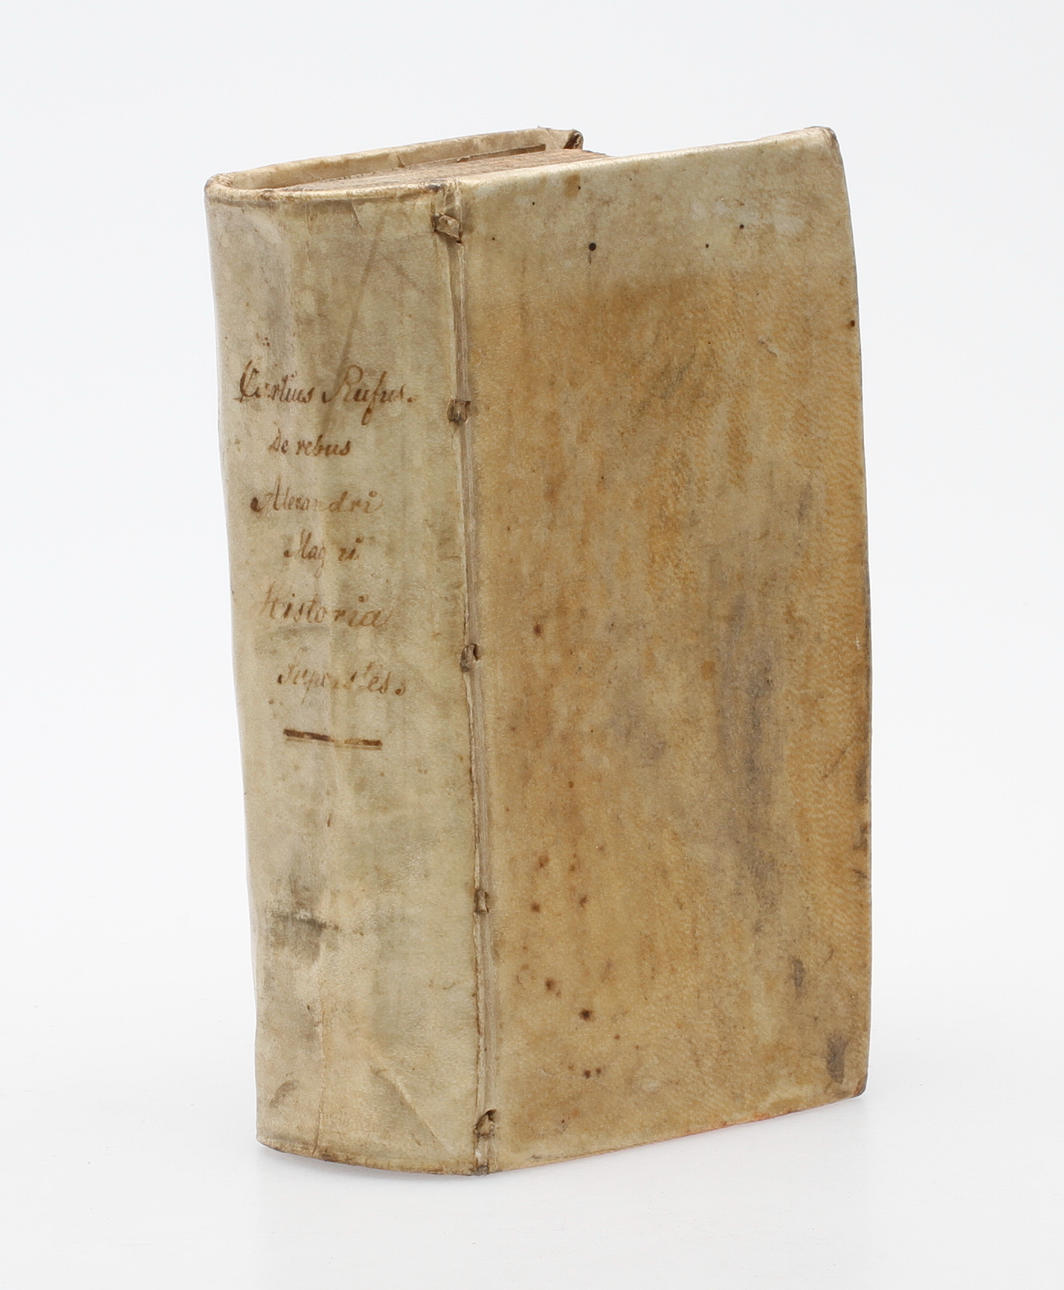 Curtius Rufus.
De rebus
Alexandri
Magni
Historia
Superstes.